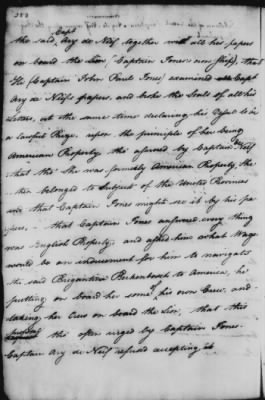 Capt
the said, Ary de Neif together with all his papers
on board the Lion, (Captain Jones's own ship), that
He (Captain John Paul Jones) examined Capt
Ary de Neif's papers, and broke the Seals of all his
Letters, at the same time declaring his Vessel to be
a lawful Prize, upon the principle of her being
American Property tho assured by Captain Neif
that tho' She was formerly American Property, she
then belonged to Subjects of the United Provinces
and that Captain Jones might see it by his pa
pers, – that Captain Jones answered every thing
was English Property, and asked him what Wage
would be an inducement for him to navigate
the said Brigantine Berkenbosch to America, he
putting on board her some of his own Crew, and
taking her Crew on board the Lion, that this
proposal tho often urged by Captain Jones
Captain Ary de Neif refused accepting it